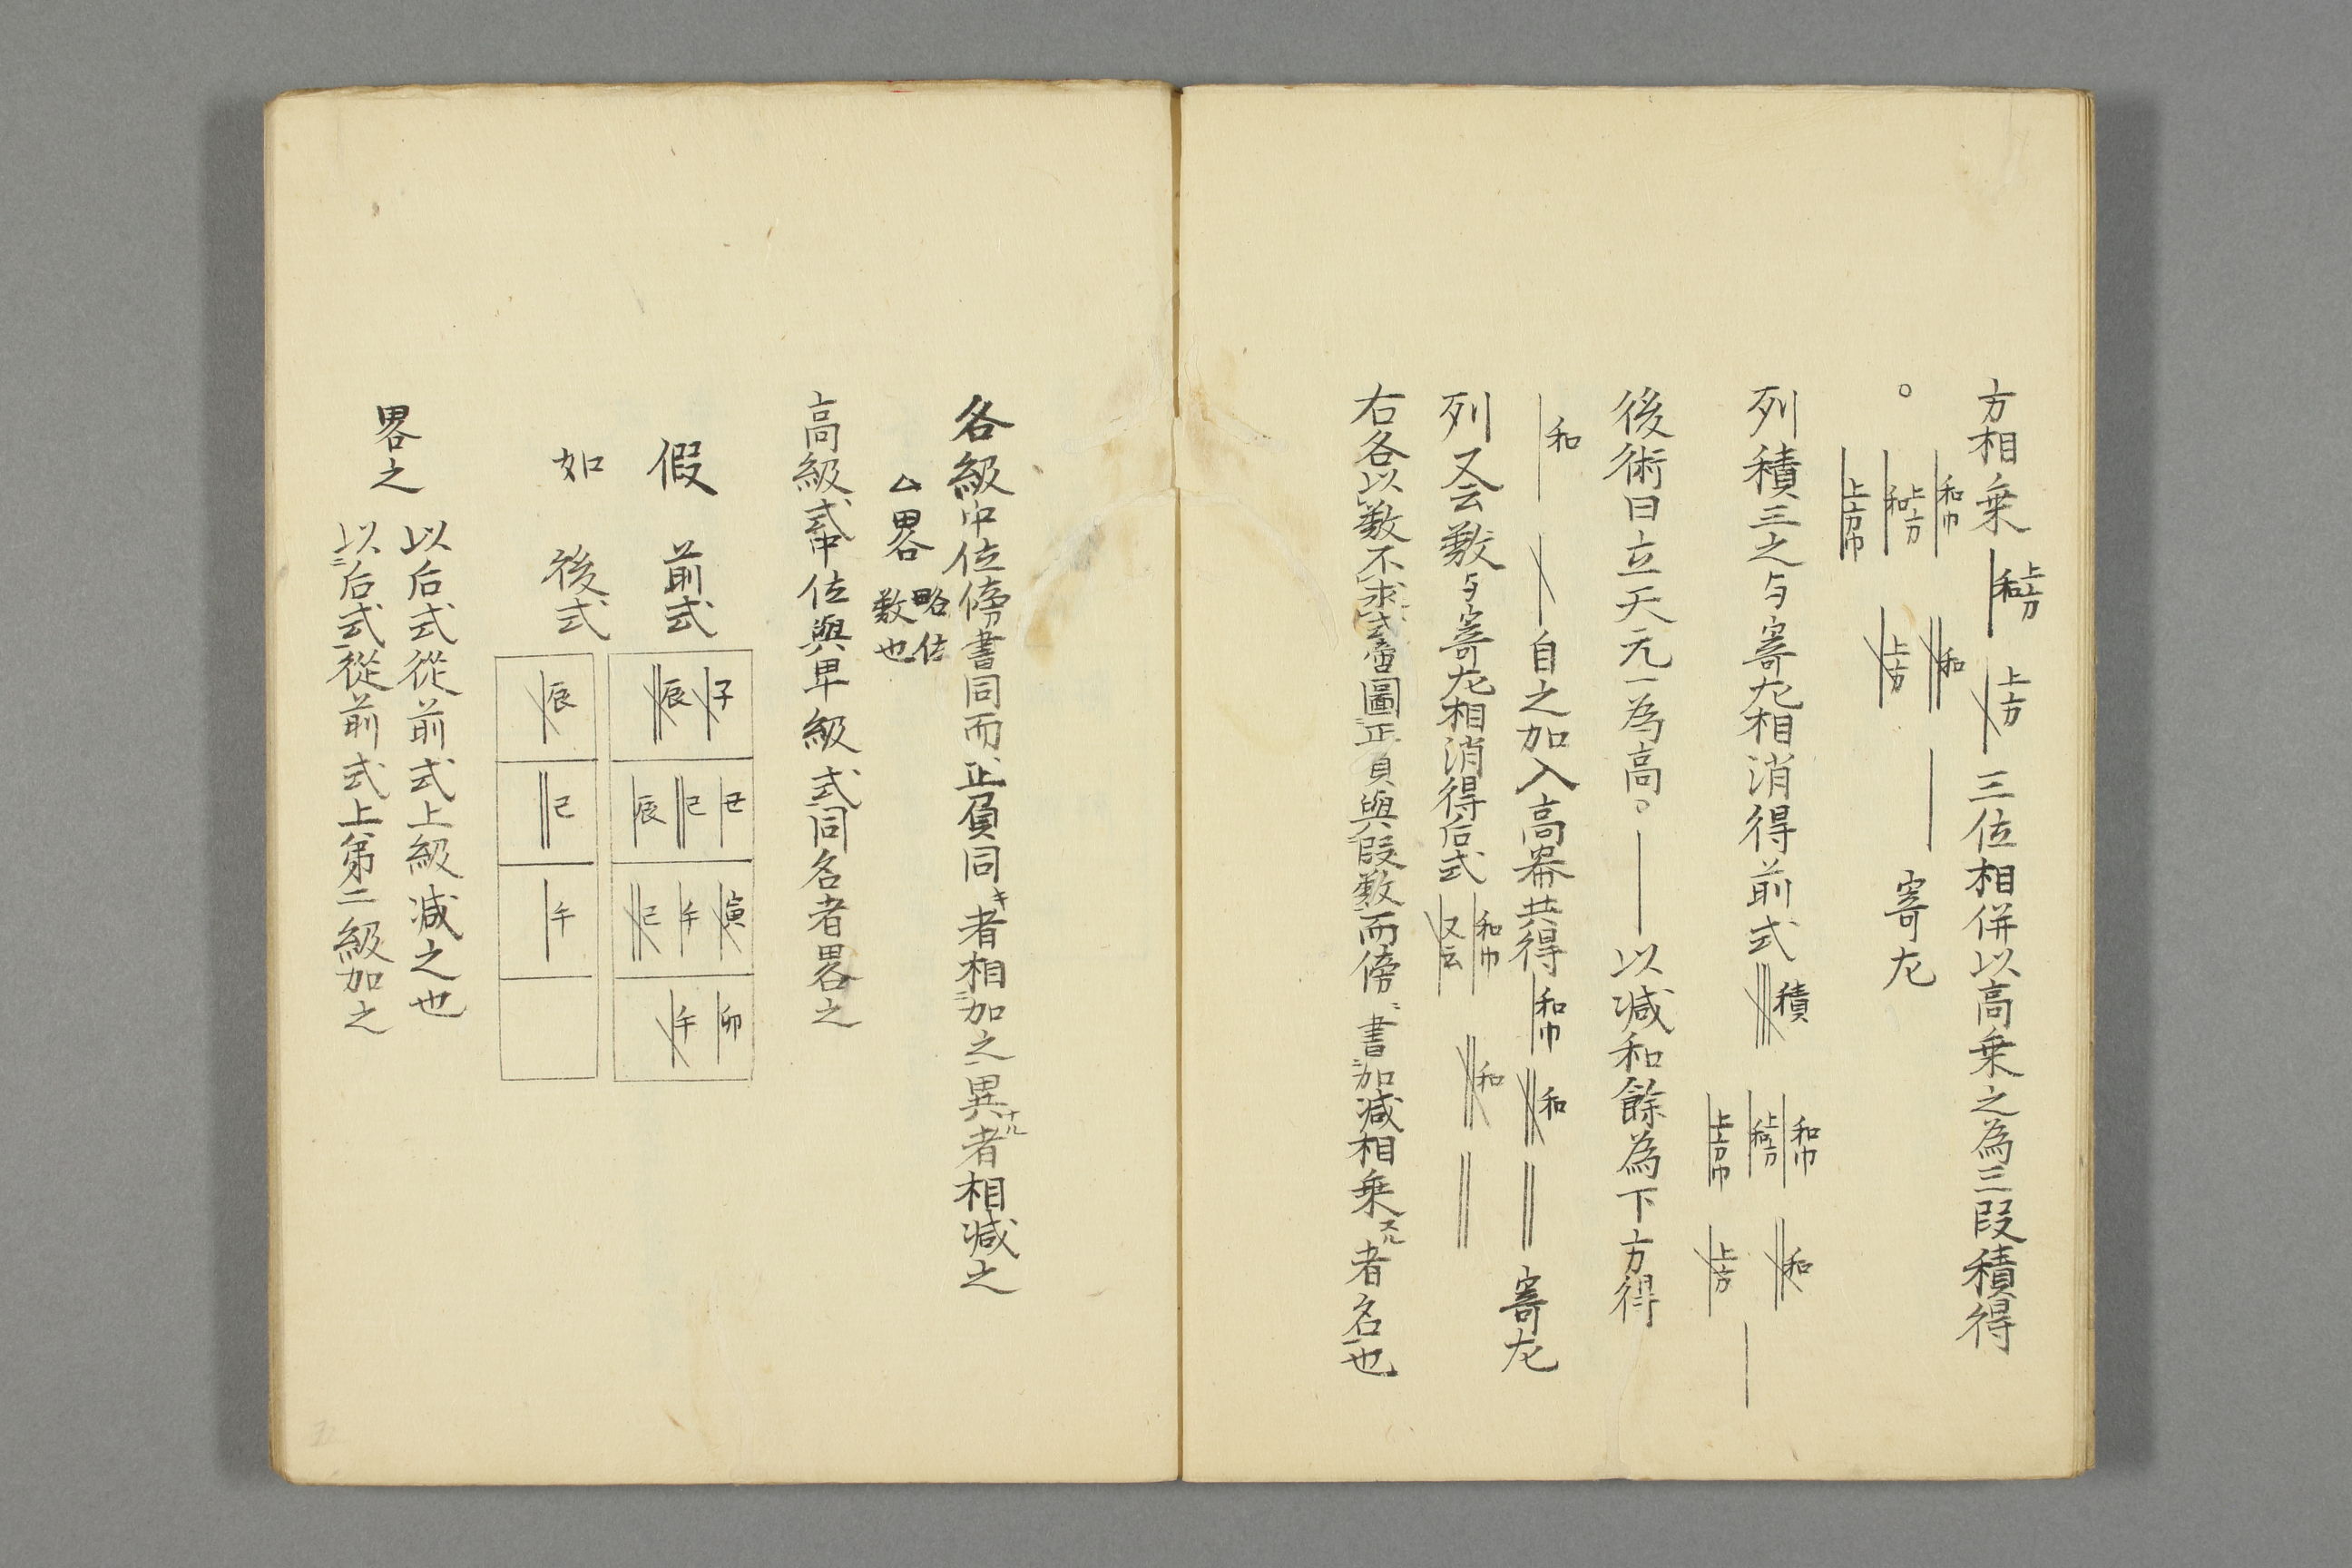 方相乗 和上方 上方 三位相併以高乗之為三段積得
。 和巾 和上方 上方巾 和 上方 寄左
列積三之与寄左相消得前式 積 和巾 和上方 上方巾 和 上方
後術曰立天元一為高。 以減和餘為下方得
和 自之加入高冪共得 和巾 和 寄左
列又云數与寄左相消得后式 和巾 又云 和
右各以數不求式 圖正負與段數而傍書加減相乗スル者名也
各級中位傍書同而正負同キ者相加之異ナル者相減之
△畧 略位數也
高級式中位與卑級式同名者畧之
假如
前式 子辰 丑巳辰 寅午巳 卯午
後式 辰 巳 午
畧之
以后式從前式上級減之也
以后式從前式上第二級加之